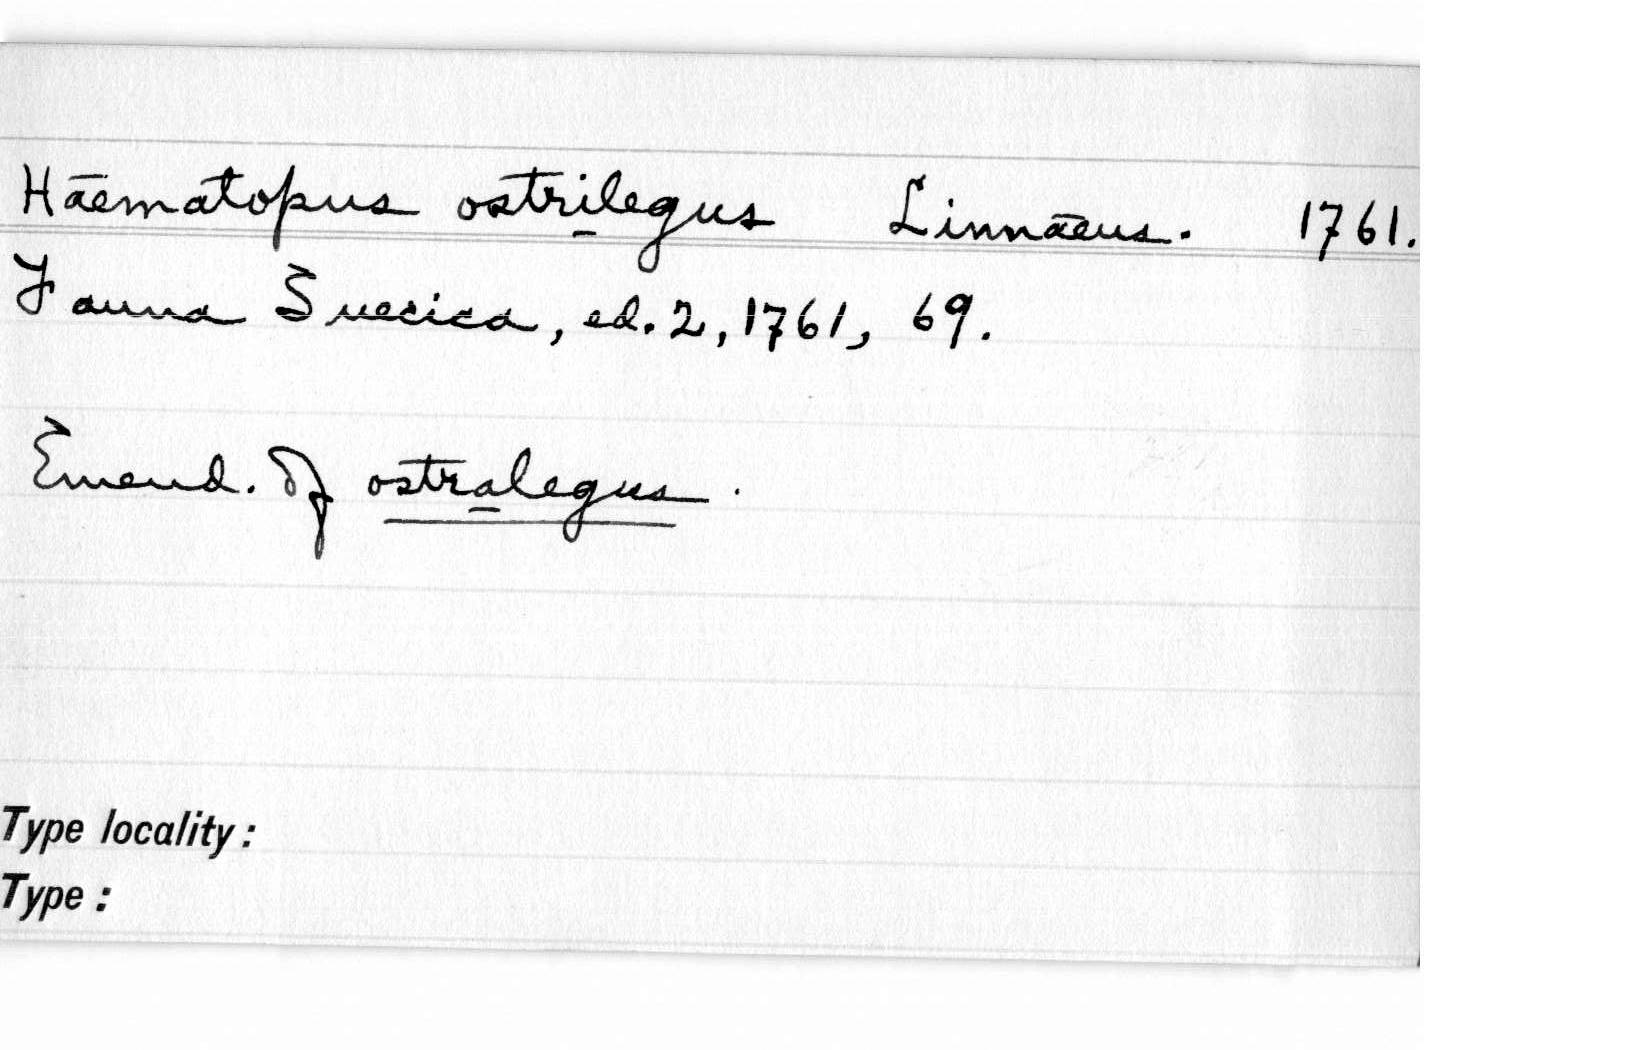 Haematopus ostrilegus Linnaeus. 1761.
Fauna Suecica, ed. 2, 1761, 69.
Emend. of ostralegus.
Type locality:
Type: